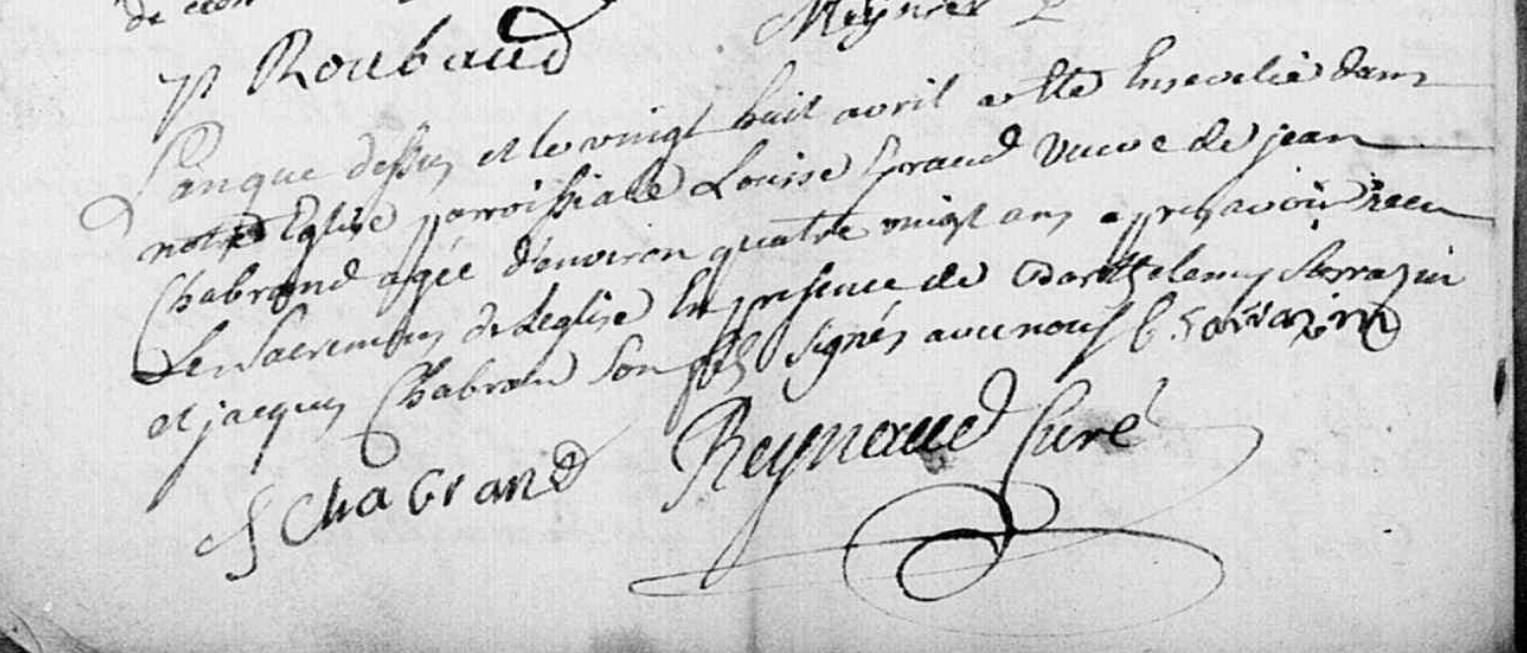 de
Meynier
P Roubaud
L'an que dessus et le vingt huit avril a etté Ensevelie dans
notre Eglise parroissialle Louise Eyraud veuve de jean
Chabrand agée d'environ quatre vingt ans apres avoir receu
Les sacremens de L'eglise En presence de Barthelemy Sarrazin
et jacques Chabran son fils signés avec nous b. sarrazin
J Chabrand Reynaud Curé